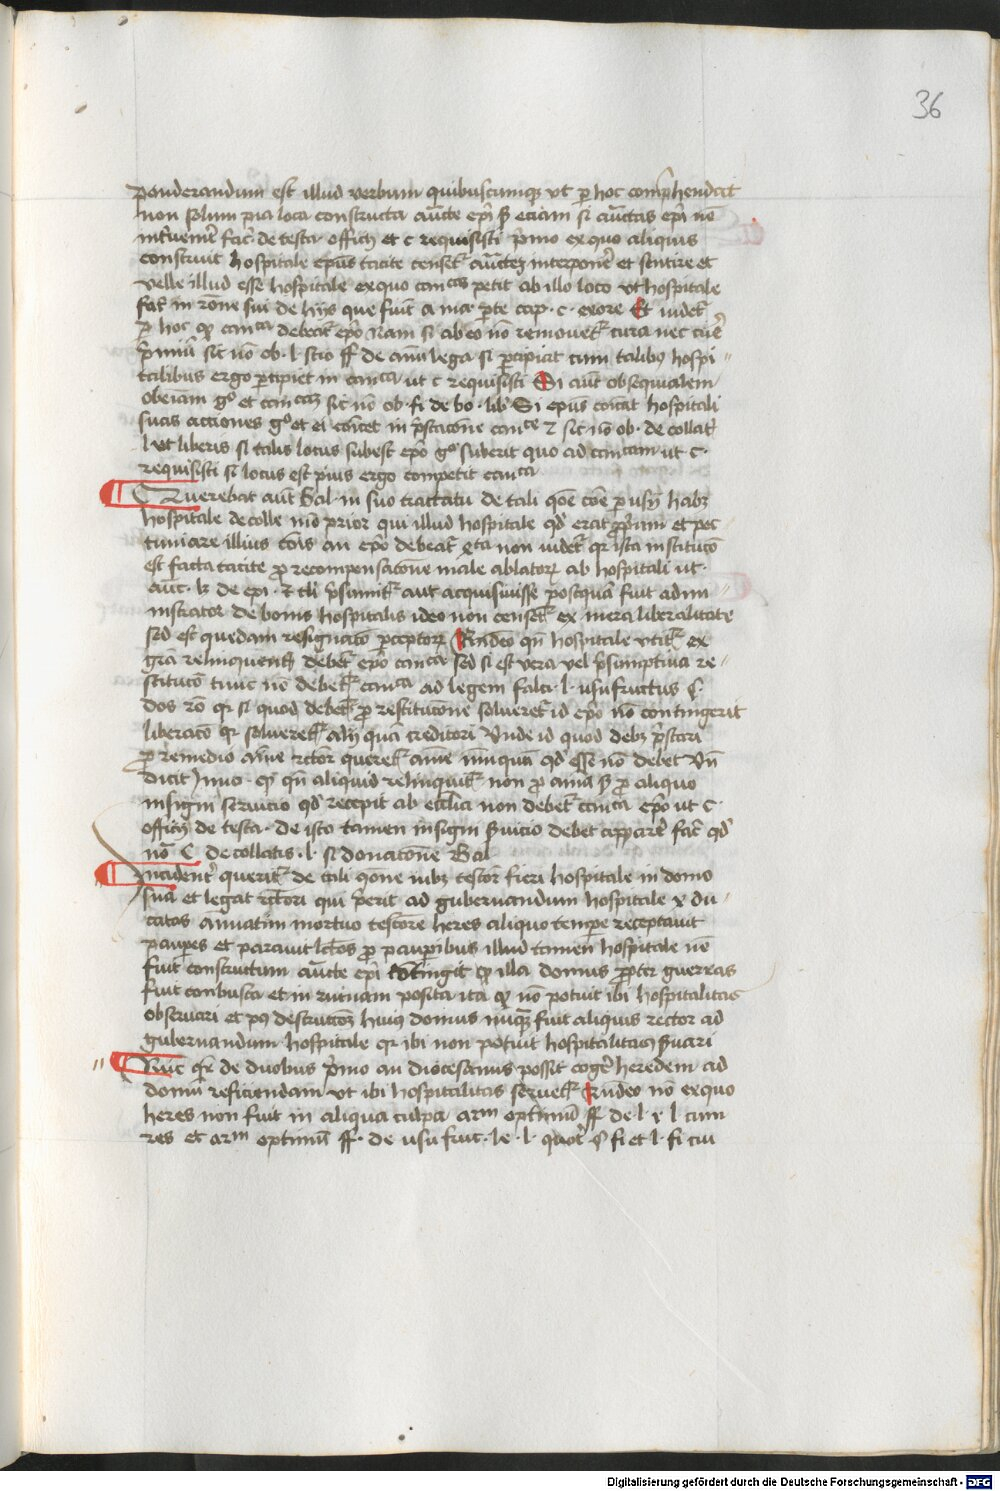 36
ponderandum est illud verbum quibuscumqz vt p hoc comprehendat
non solum pia loca constructa aucte epi s3 eciam si auctas epi no
intervenit fac de testa officij et c requisisti primo ex quo aliquis
construit hospitale epus tacite censetr auctez interponere et sentire et
velle illud esse hospitale ex quo cancas petit ab illo loco vt hospitale
fac in rone sui de hijs que fiut a ma prte cap c exore Et videtr
p hoc q canca debeatr epo Nam si ab eo no removetr cura nec
primu sic no ob l scio ff de annu lega si percipiat cum talibus hospi
talibus ergo percipiet in canca ut c requisisti Si aut obsequialem
obeiam go et cancam sic no ob fi de bo lib Si epus coicat hospitali
suas acciones go et ei coicet in prestacone cance et sic no ob de collac
l ut liberis si talis locus subest epo go suberit quo ad cancam ut c
requisisti si locus est pius ergo competit canca
Querebat aut Bal in suo tractatu de tali qone coe p usu habz
hospitale de colle mo prior qui illud hospitale qd erat et pec
tuniare illius cois an epo debeatr canca non videtr qr ista institucio
est facta tacite pro recompensacone male ablatorum ab hospitali ut
auc lz de epi et cli presumitr aut acquisiuisse postqua fuit admi
nistrator de bonis hospitalis ideo non censetr ex mera liberalitate
sed est quedam resignacio perceptorum Rndeo qn hospitale utitr ex
gra relinquentis debetr epo canca sed si est vera vel presumptiua re
stitucio tunc no debetr canca ad legem falci l usufructus c
dos ro qr si quod debetr pro restitucione solueretr id epo no contingerit
liberacio qr solueretr alij qua creditori Vnde id quod debz prestari
pro remedio anime rector queretr anime nunqua qd esse no debet Vn
dicit Inno q qn aliquid relinquitr non pro anima s3 pro aliquo
insigni seruicio qd recepit ab ecclia non debetr canca epo ut c
officij de testa de isto tamen insigni seruicio debet apparere fac qd
no C de collatis l si donacione Bal
Incidentr queritr de tali qone iubz testor fieri hospitale in domo
sua et legat rectori qui prerit ad gubernandum hospitale x du
catos annuatim mortuo testore heres aliquo tempore receptauit
pauperes et parauit lectos pro pauperibus illud tamen hospitale no
fuit constructum aucte epi contingit q illa domus propter guerras
fuit conbusta et in ruinam posita ita q no potuit ibi hospitalitas
obseruari et post destructione huius domus nuqz fuit aliquis rector ad
gubernandum hospitale qr ibi non potuit hospitalitas seruari
Nunc qr de duobus primo an diocesanus possit cogere heredem ad
domu reficiendam vt ibi hospitalitas seruetr Rndeo no ex quo
heres non fuit in aliqua culpa arm optimu ff de l x l cum
res et arm optimu ff de usu fruc le l quotiens fi et l fi cui
Digitalisierung gefördert durch die Deutsche Forschungsgemeinschaft - DFG